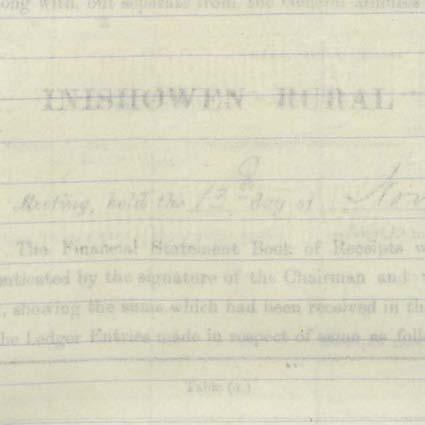 ong with, but separate from the General Minutes
INISHOWEN RURAL
Meeting, held the 13th day of Nov
The Financial Statement Book of Receipts w
enticated by the signature of the Chairman and
, showing the same which had been received in th
he Ledger Entries made in respect of same as follo
Table (a.)